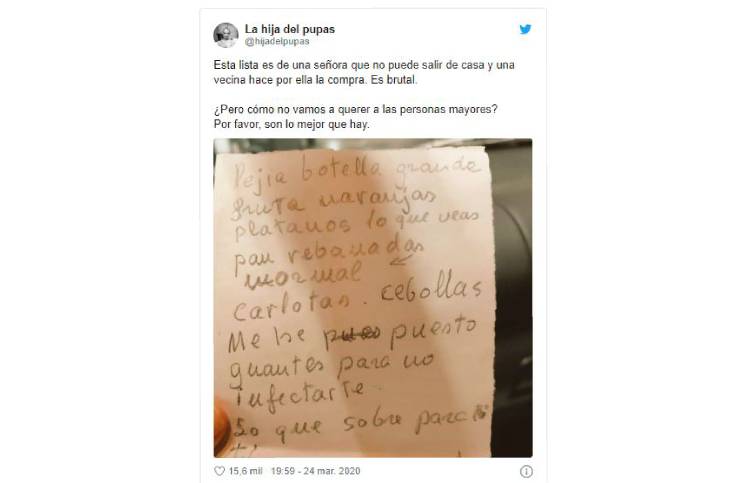 La hija del pupas
@hijadelpupas
Esta lista es de una señora que no puede salir de casa y una
vecina hace por ella la compra. Es brutal.
¿Pero cómo no vamos a querer a las personas mayores?
Por favor, son lo mejor que hay.
Lejia botella grande
fruta naranjas
platanos lo que veas
pan rebanadas
normal
carlotas. cebollas
Me he pues puesto
guantes para no
infectarte
50 que sobre para
ti
15,6 mil 19:59 - 24 mar. 2020